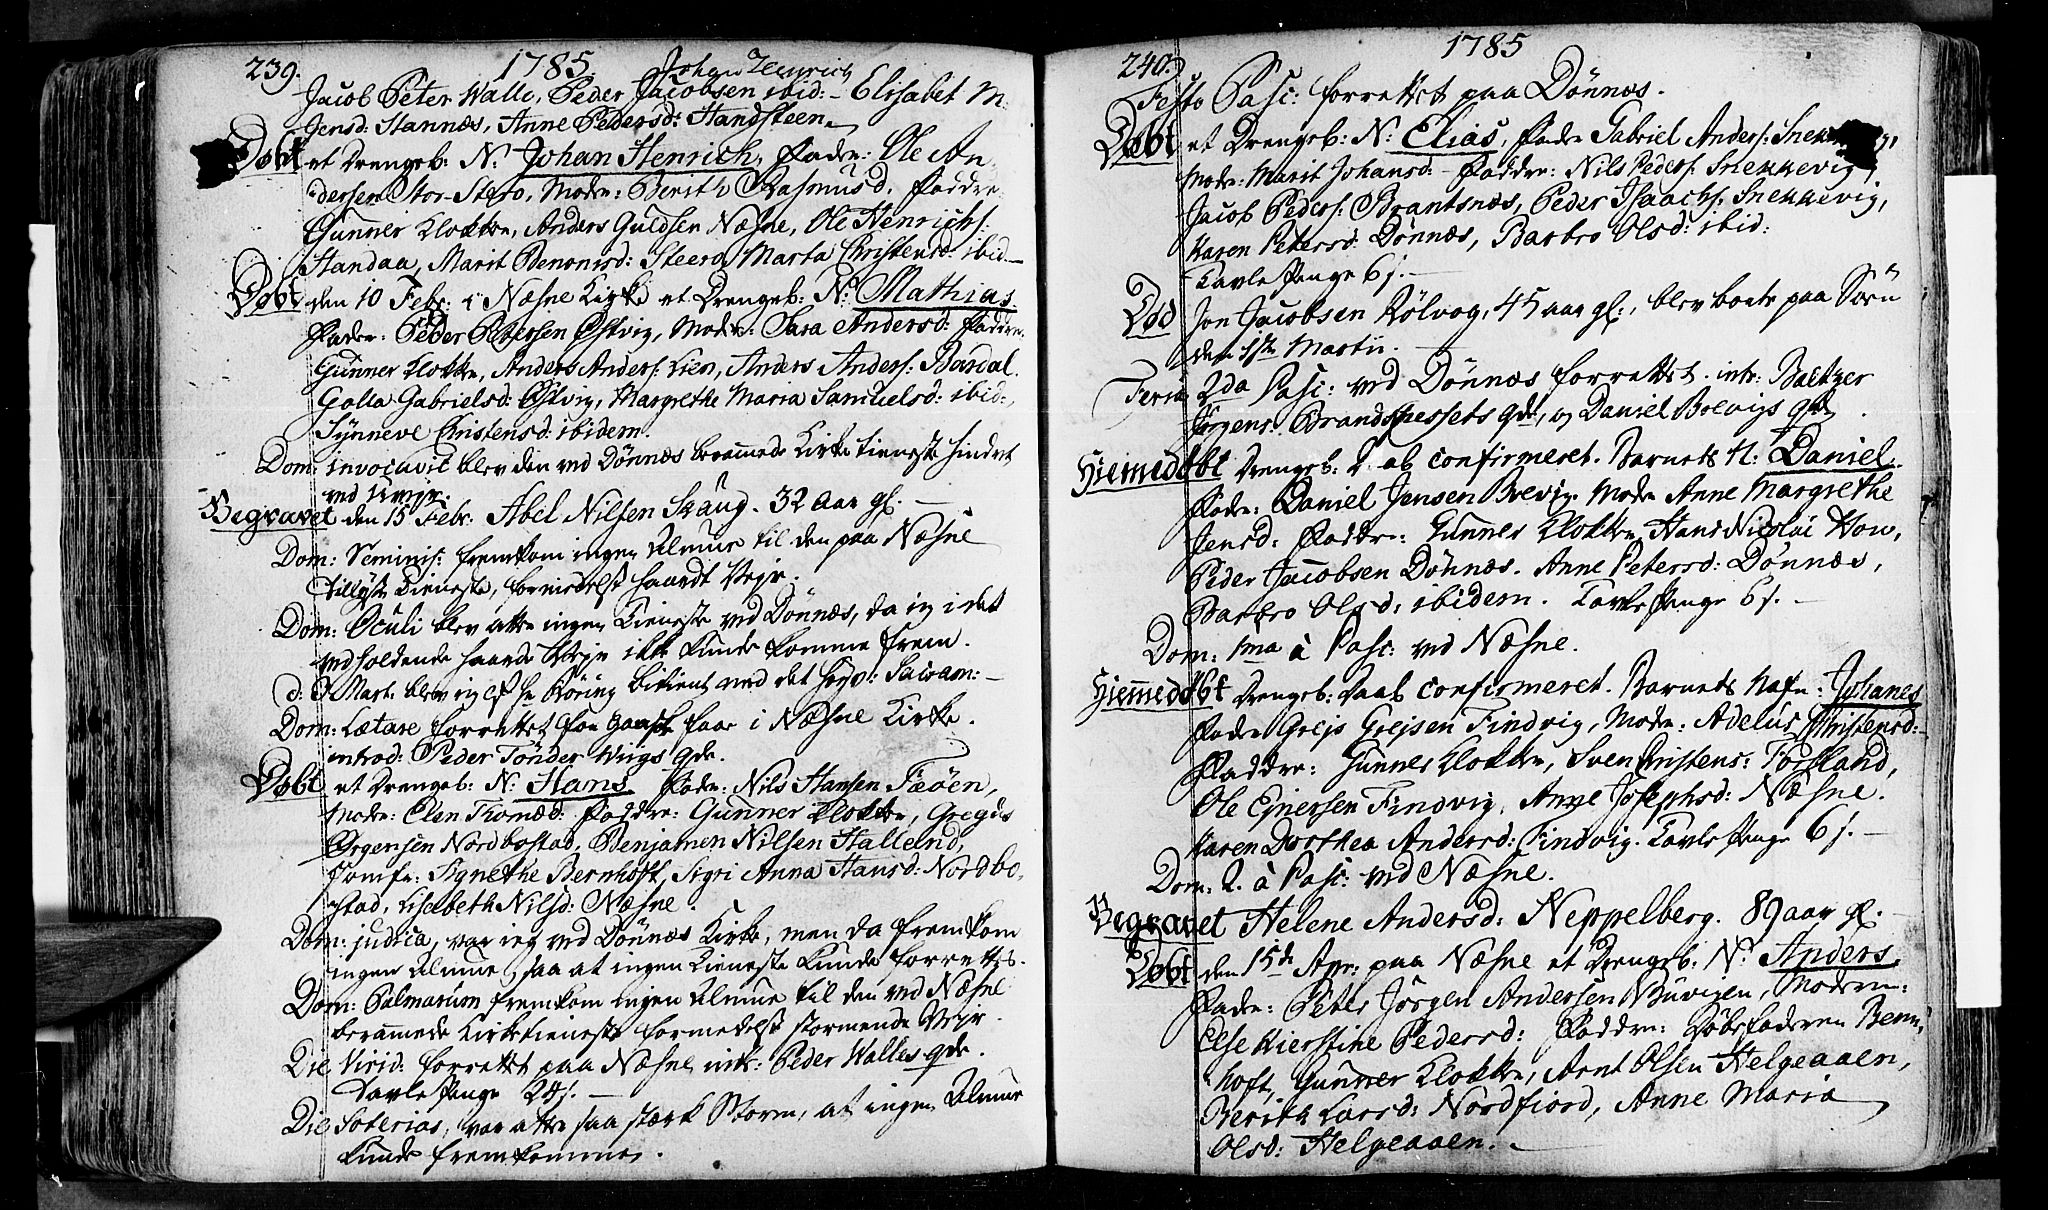 239. 1785 Johan Henrich
Jacob Peter Walle, Peder Jacobsen ibid: Elisabet M:
Jensd: Hannæs, Anne Pedersd: Handsteen.
Døbt et Drengeb: N: Johan Henrich, Fader: Ole An-
dersen Stor-Stero, Moder: Berith Rasmusd. Faddre
Gunner Klokker, Anders Guldsen Næsne, Ole Henrichs:
Handaa, Marit Benonisd: Steero, Marta Christensd: ibid
Døbt den 10 Febr: i Næsne Kirke et Drengeb: N: Mathias.
Fader: Peder Petersen Østvig, Moder: Sara Andersd: Faddre:
Gunner Klokker, Anders Anders: Lien, Anders Anders: Bardal.
Golla Gabrielsd: Østvig, Margrethe Maria Samuelsd: ibid:,
Synneve Christensd: ibidem.
Dom: invocavit blev den ved Dönnæs berammede Kirke tieneste hindret
ved
Begravet den 15 Febr: Abel Nilsen Skaug. 32 Aar gl.
Dom: Seminis: fremkom ingen Almue til den paa Næsne
tillyste Tieneste, formedelst haardt Vejr.
Dom: Oculi blev atter ingen Tieneste ved Dönnæs, da jeg i det
vedholdende haarde Vejr ikke kunde komme frem.
d: 3 Mart. blev jeg af Hr Röring betient med det Høyv: Sacram:
Dom: Lætare forrettet for gandske faae i Næsne Kirke.
introd: Peder Tönder Wiigs qde.
Døbt et Drengeb: N: Hans Fader: Nils Hansen Fæöen,
Moder: Elen Tromæd: Faddre: Gunner Klokker, Gregds
Ørgensen Nordbostad, Benjamen Nilsen Halland,
Jomfr: Agnethe Bernhoft, Sigri Anna Hansd: Nordbo-
stad, Lisabeth Nilsd: Næsne.
Dom: judica, var jeg ved Dönnæs Kirke, men da fremkom
ingen Almue, saa at ingen Tieneste kunde forrettes.
Dom: Palmarum fremkom ingen Almue til den ved Næsne
berammede Kirketieneste formedelst stormende Vejr.
Die Virid: forrettet paa Næsne intr: Peder Walles qde.
Tavle Penge 24 s.
Die Soterias, var atter saa stærk Storm, at ingen Almue
kunde fremkomme.
240. 1785
Festo Pasc: forrettet paa Dönnæs.
Døbt et Drengeb: N: Elias, Fader Gabriel Anders:
Moder: Marit Johansd: Faddre: Nils Peders: Snekkevig,
Jacob Peders: Brantsnæs, Peder Isaachs: Snekkevig,
Karen Petersd: Dönnæs, Barbro Olsd: ibid:
Tavle Penge 6 s.
Död Jon Jacobsen Rölvog, 45 aar gl., blev boete paa Söen
den 1ste Martii.
Feria 2da Pasc: ved Dönnæs forrettet. intr: Baltzer
Jörgens: qde, og Daniel Brevigs qde.
Hiemedøbt Drengeb: D. ab confirmeret. Barnets N: Daniel.
Fader: Daniel Jensen Brevig. Moder Anne Margrethe
Jensd: Faddre: Gunner Klokker, Hans Nicolai
Peder Jacobsen Dönnæs. Anne Petersd: Dönnæs,
Barbro Olsd: ibidem. Tavle Penge 6 s.
Dom: 1ma à Pasc: ved Næsne.
Hiemedøbt Drengeb: Daab confirmeret. Barnets Nafn: Johanes
Fader Grejs Grejsen Findvig, Moder: Adelus Christensd:
Faddre: Gunner Klokker, Sven Christens: Forsland,
Ole Ejnersen Findvig, Anne Josephsd: Næsne.
Karen Dorthea Andersd: Findvig. Tavle Penge 6 s.
Dom: 2. à Pasc: ved Næsne.
Begravet Helene Andersd: Neppelberg. 89 aar gl.
Døbt den 15de Apr: paa Næsne et Drengeb: N: Anders.
Fader: Peter Jörgen Andersen Buvigen, Moderen:
Else Kierstine Pedersd: Faddre: Kiøbsvaderen Bern-
hoft, Gunner Klokker, Arnt Olsen Helgeaaen,
Berith Larsd: Nordfiord, Anne Maria
Olsd: Helgeaaen.